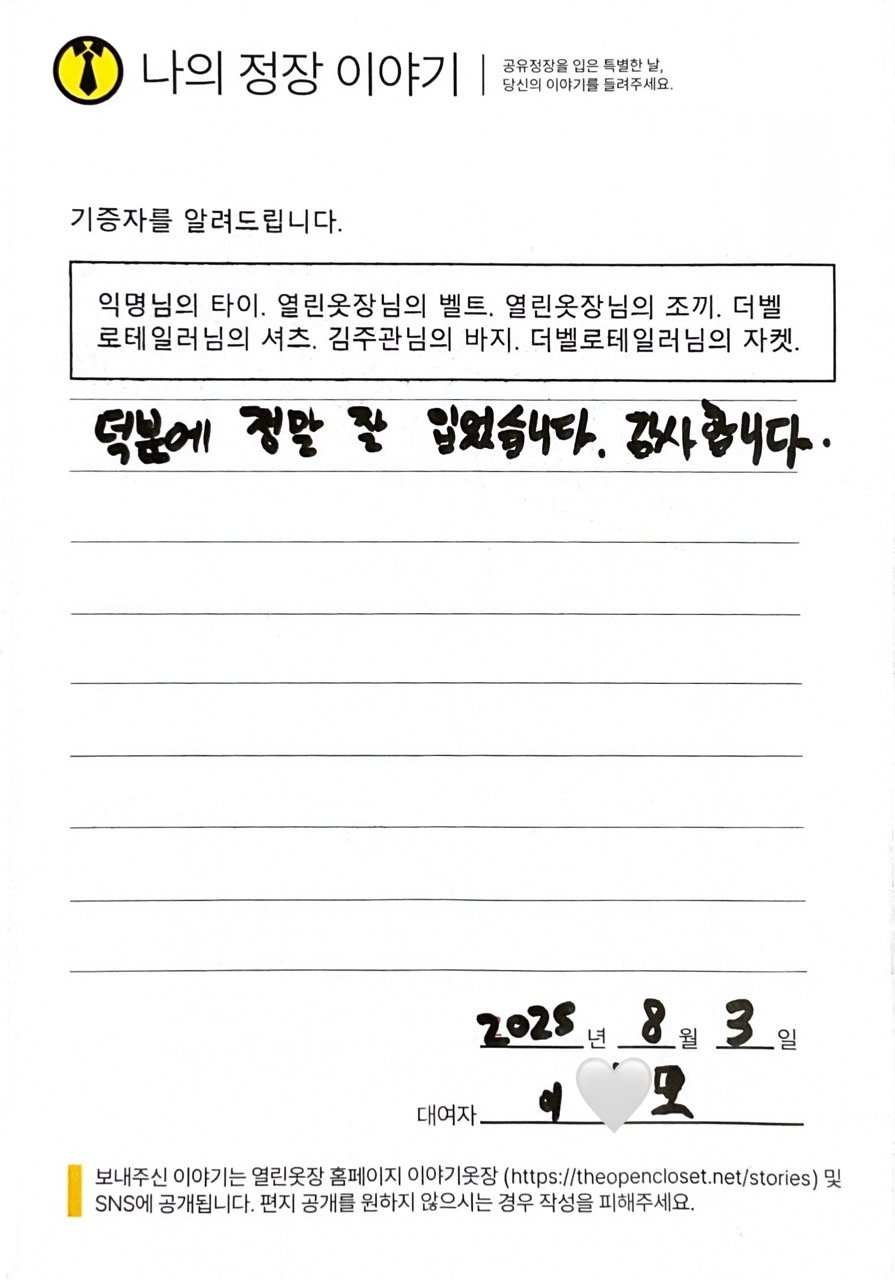 나의 정장 이야기
공유정장을 입은 특별한 날,
당신의 이야기를 들려주세요.
기증자를 알려드립니다.
익명님의 타이. 열린옷장님의 벨트. 열린옷장님의 조끼. 더벨
로테일러님의 셔츠. 김주관님의 바지. 더벨로테일러님의 자켓.
덕분에 정말 잘 입었습니다. 감사합니다.
2025년 8월 3일
대여자 이 모
보내주신 이야기는 열린옷장 홈페이지 이야기옷장 (https://theopencloset.net/stories) 및
SNS에 공개됩니다. 편지 공개를 원하지 않으시는 경우 작성을 피해주세요.